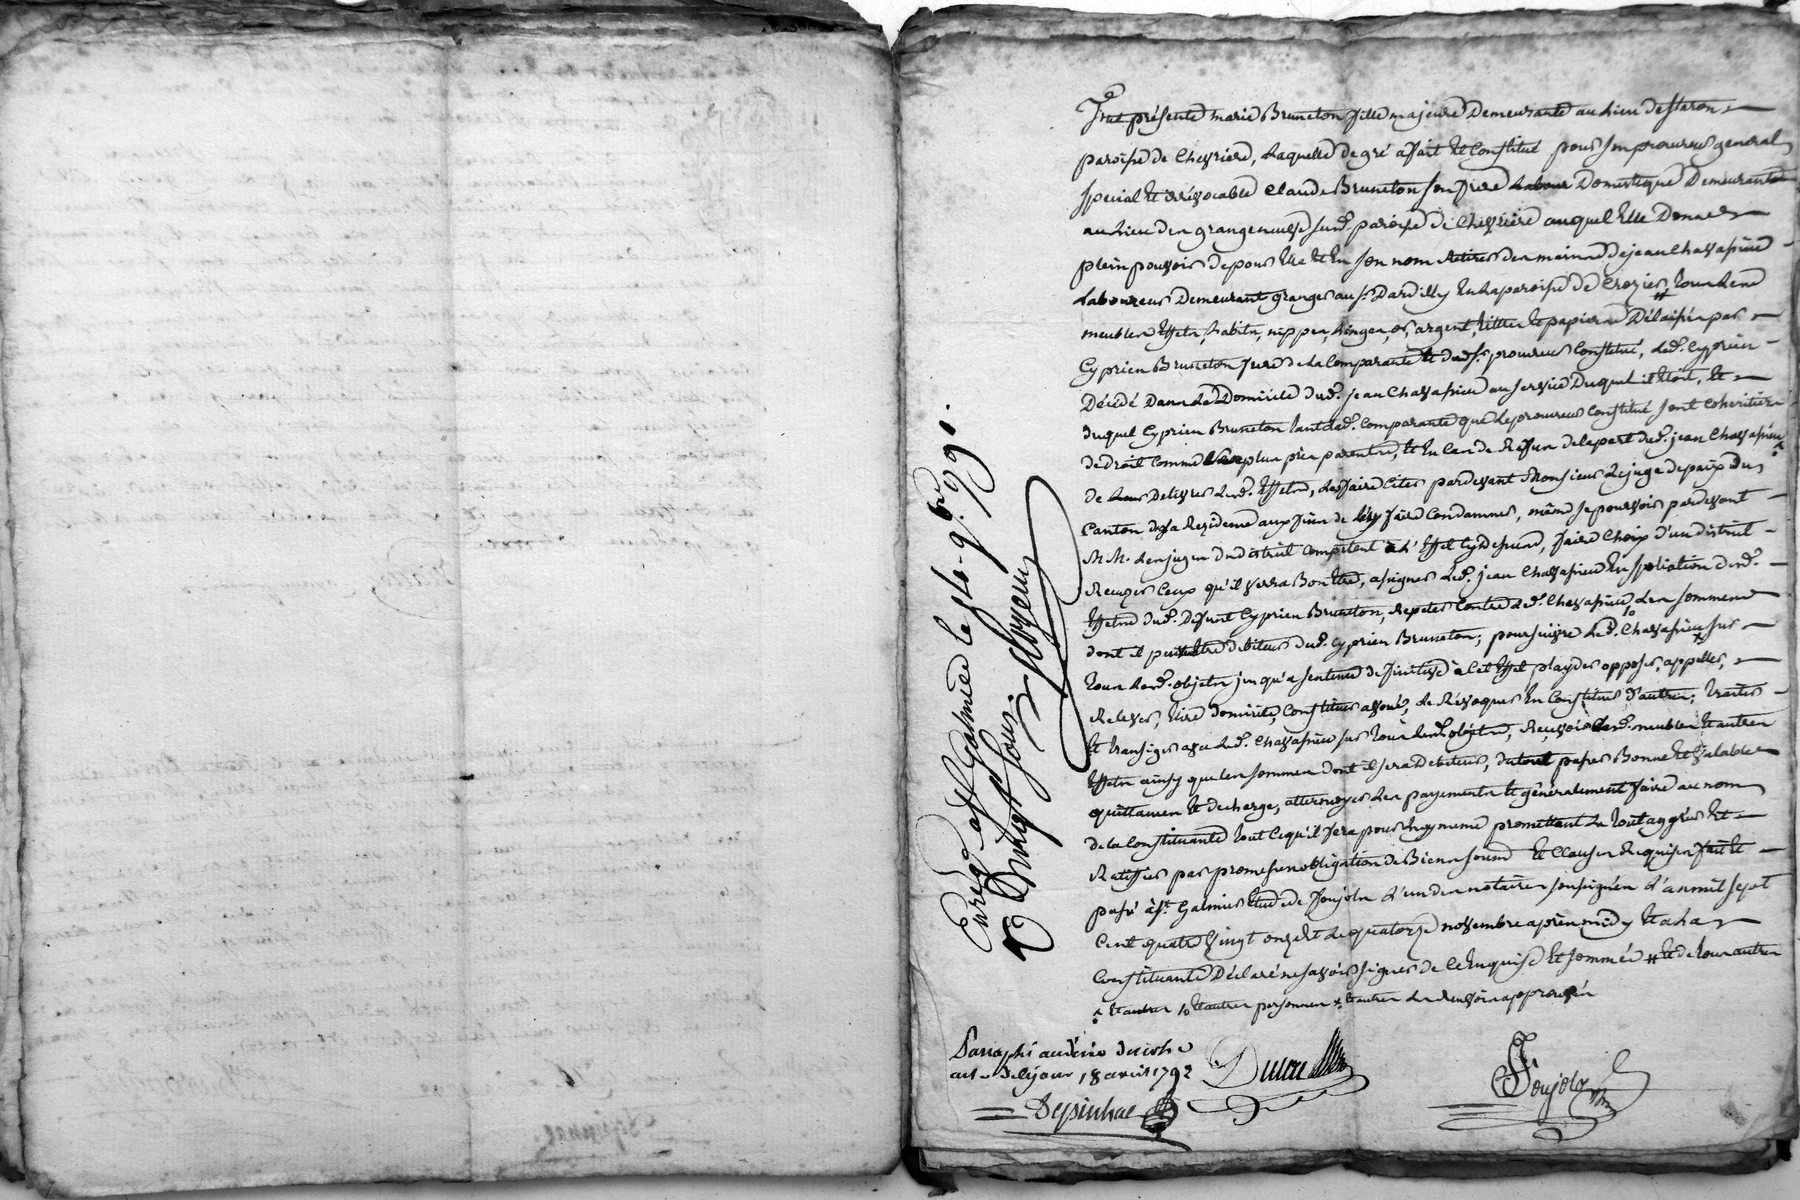 fut présente marie Bruneton fille majeure Demeurante au Lieu de
paroisse de Chevrière, Laquelle de gré a fait et Constitué pour son procureur general
spécial et irrévocable Claude Bruneton son frere Domestique Demeurant
au Lieu de grangeneuve sud. paroisse de Chevriere auquel Elle Donne
plein pouvoir de pour Elle et En son nom Retirer des mains de jean Chavassieu
Laboureur Demeurant granger au sr. Dardilly En La paroisse de tous Les
meubles Effets, habits, nippes, Linges, or, argent, titres et papiers Délaissés par
Cyprien Bruneton frere de La Comparante et dud. sr. procureur Constitué, Led. Cyprien
Décédé Dans Le Domicile dud. jean Chavassieu au service Duquel il Etoit, et
duquel Cyprien Bruneton tant Lad. Comparante que Le procureur Constitué sont Coheritiers
de droit Comme plus près parents, et En Cas de Refus de La part dud. jean Chavassieu
de Delivrer Lesd. Effets, Le faire Citer pardevant Monsieur Le juge de paix du
Canton de sa Residence aux fins de s'y faire Condamner, même se pourvoir pardevant
M.M. Les juges du district Competent à L'Effet Cy Dessus, faire Choix d'un district
Recuser Ceux qu'il verra Bon Etre, assigner Led. jean Chavassieu En spoliation desd.
Effets dud. Défunt Cyprien Bruneton, Repeter Contre Led. Chavassieu Les sommes
dont il peut Etre debiteur dud. Cyprien Bruneton; poursuivre Led. Chavassieu sur
tous Lesd. objets jusqu'a sentence définitive à Cet Effet playder opposer, appeller,
Relever, Elire domicile, Constituer avoué, Le Révoquer En Constituer d'autres; traiter
Et transiger avec Led. Chavassieu sur tous Lesd. objets, Recevoir Lesd. meubles Et autres
Effets ainsy que Les sommes dont il sera Debiteur, du tout passer Bonne Et valable
quittance Et decharge, attermoyer Les payements Et généralement faire au nom
de la Constituante tout Ce qu'il fera pour Luy meme promettant Le tout aggréer Et
Ratifier par promesse obligation de Biens soumis Et Clauses Requises fait Et
passé à st. Galmier Etude de Foujols L'un des notaires soussignés L'an mil sept
Cent quatre vingt onze Et Le quatorze novembre après midy Et a La
Constituante Déclaré ne savoir signer de Ce Enquise Et sommée # Et de tous autres
Et autres Et autres personnes Et autres Le Renvoi approuvés
Enreg. a st Galmier le 9.bre 1791.
Reçu Vingt sous
Paraphé au désir de
de Ce jour 18 avril 1792
Despinhac
Ducou
Foujols